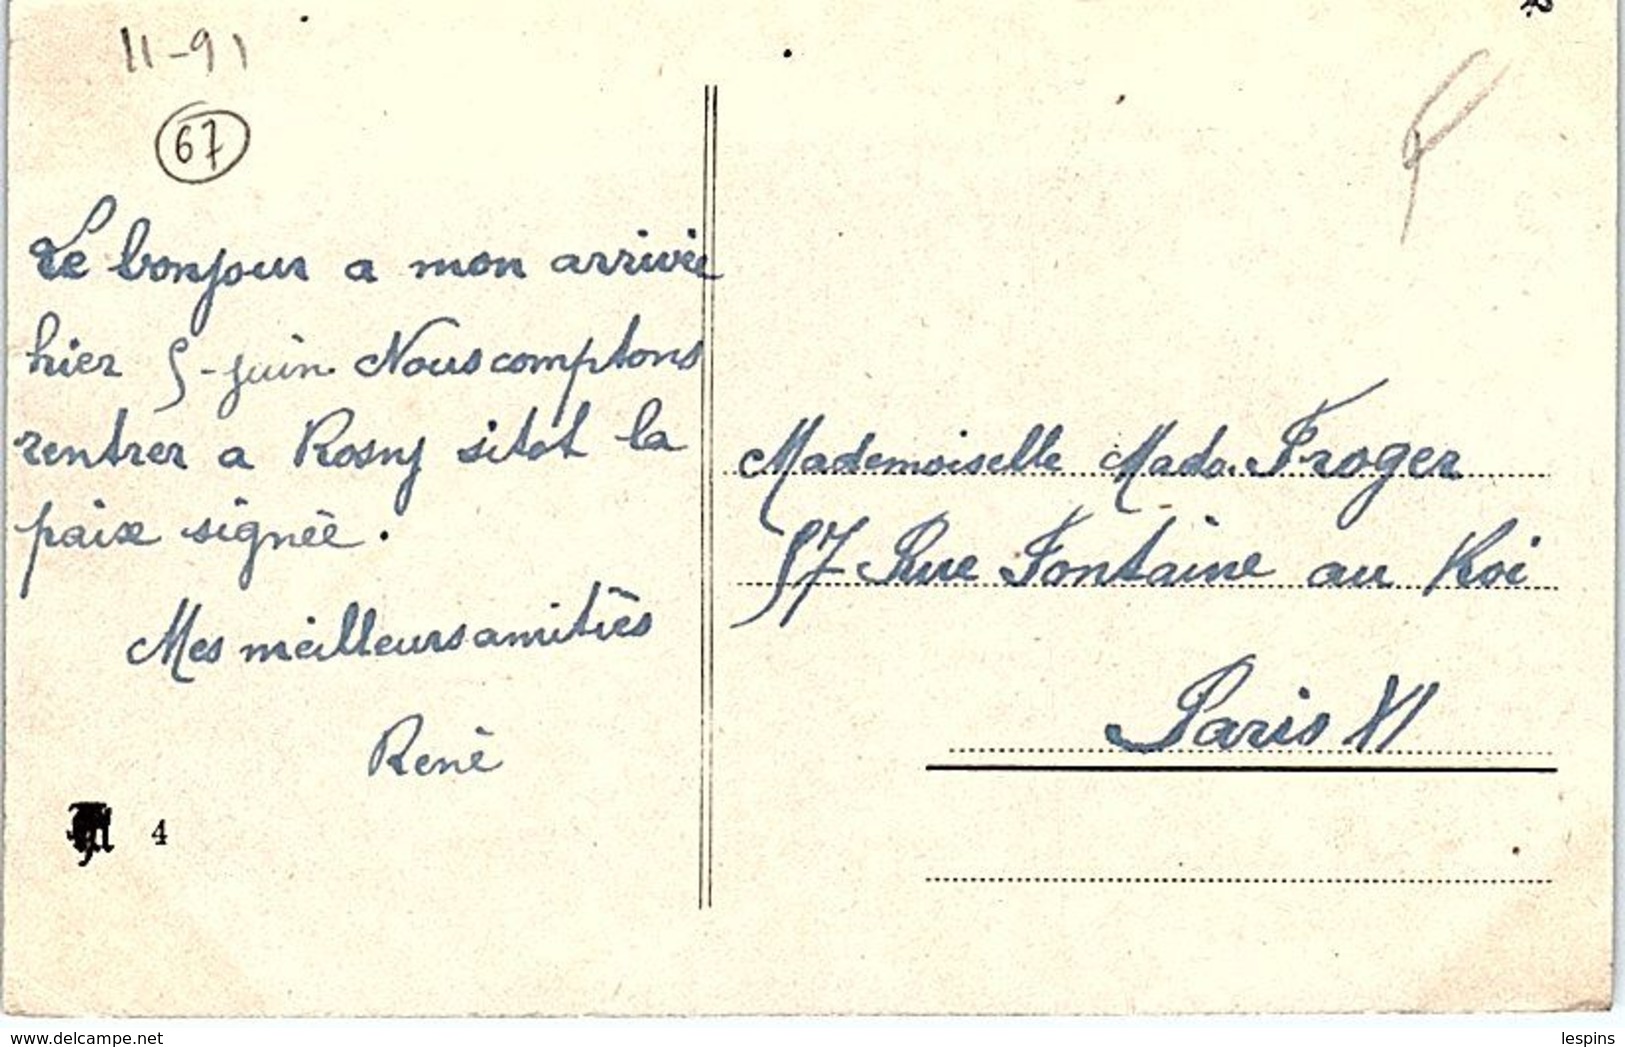 11-91
67
Le bonjour a mon arrivée
hier 5-juin. Nous comptons
rentrer a Rosny sitot la
paix signée.
Mes meilleurs amitiés
René
4
Mademoiselle Mado. Froger
57 Rue Fontaine au Roi
Paris XI
www.delcampe.net
lespins